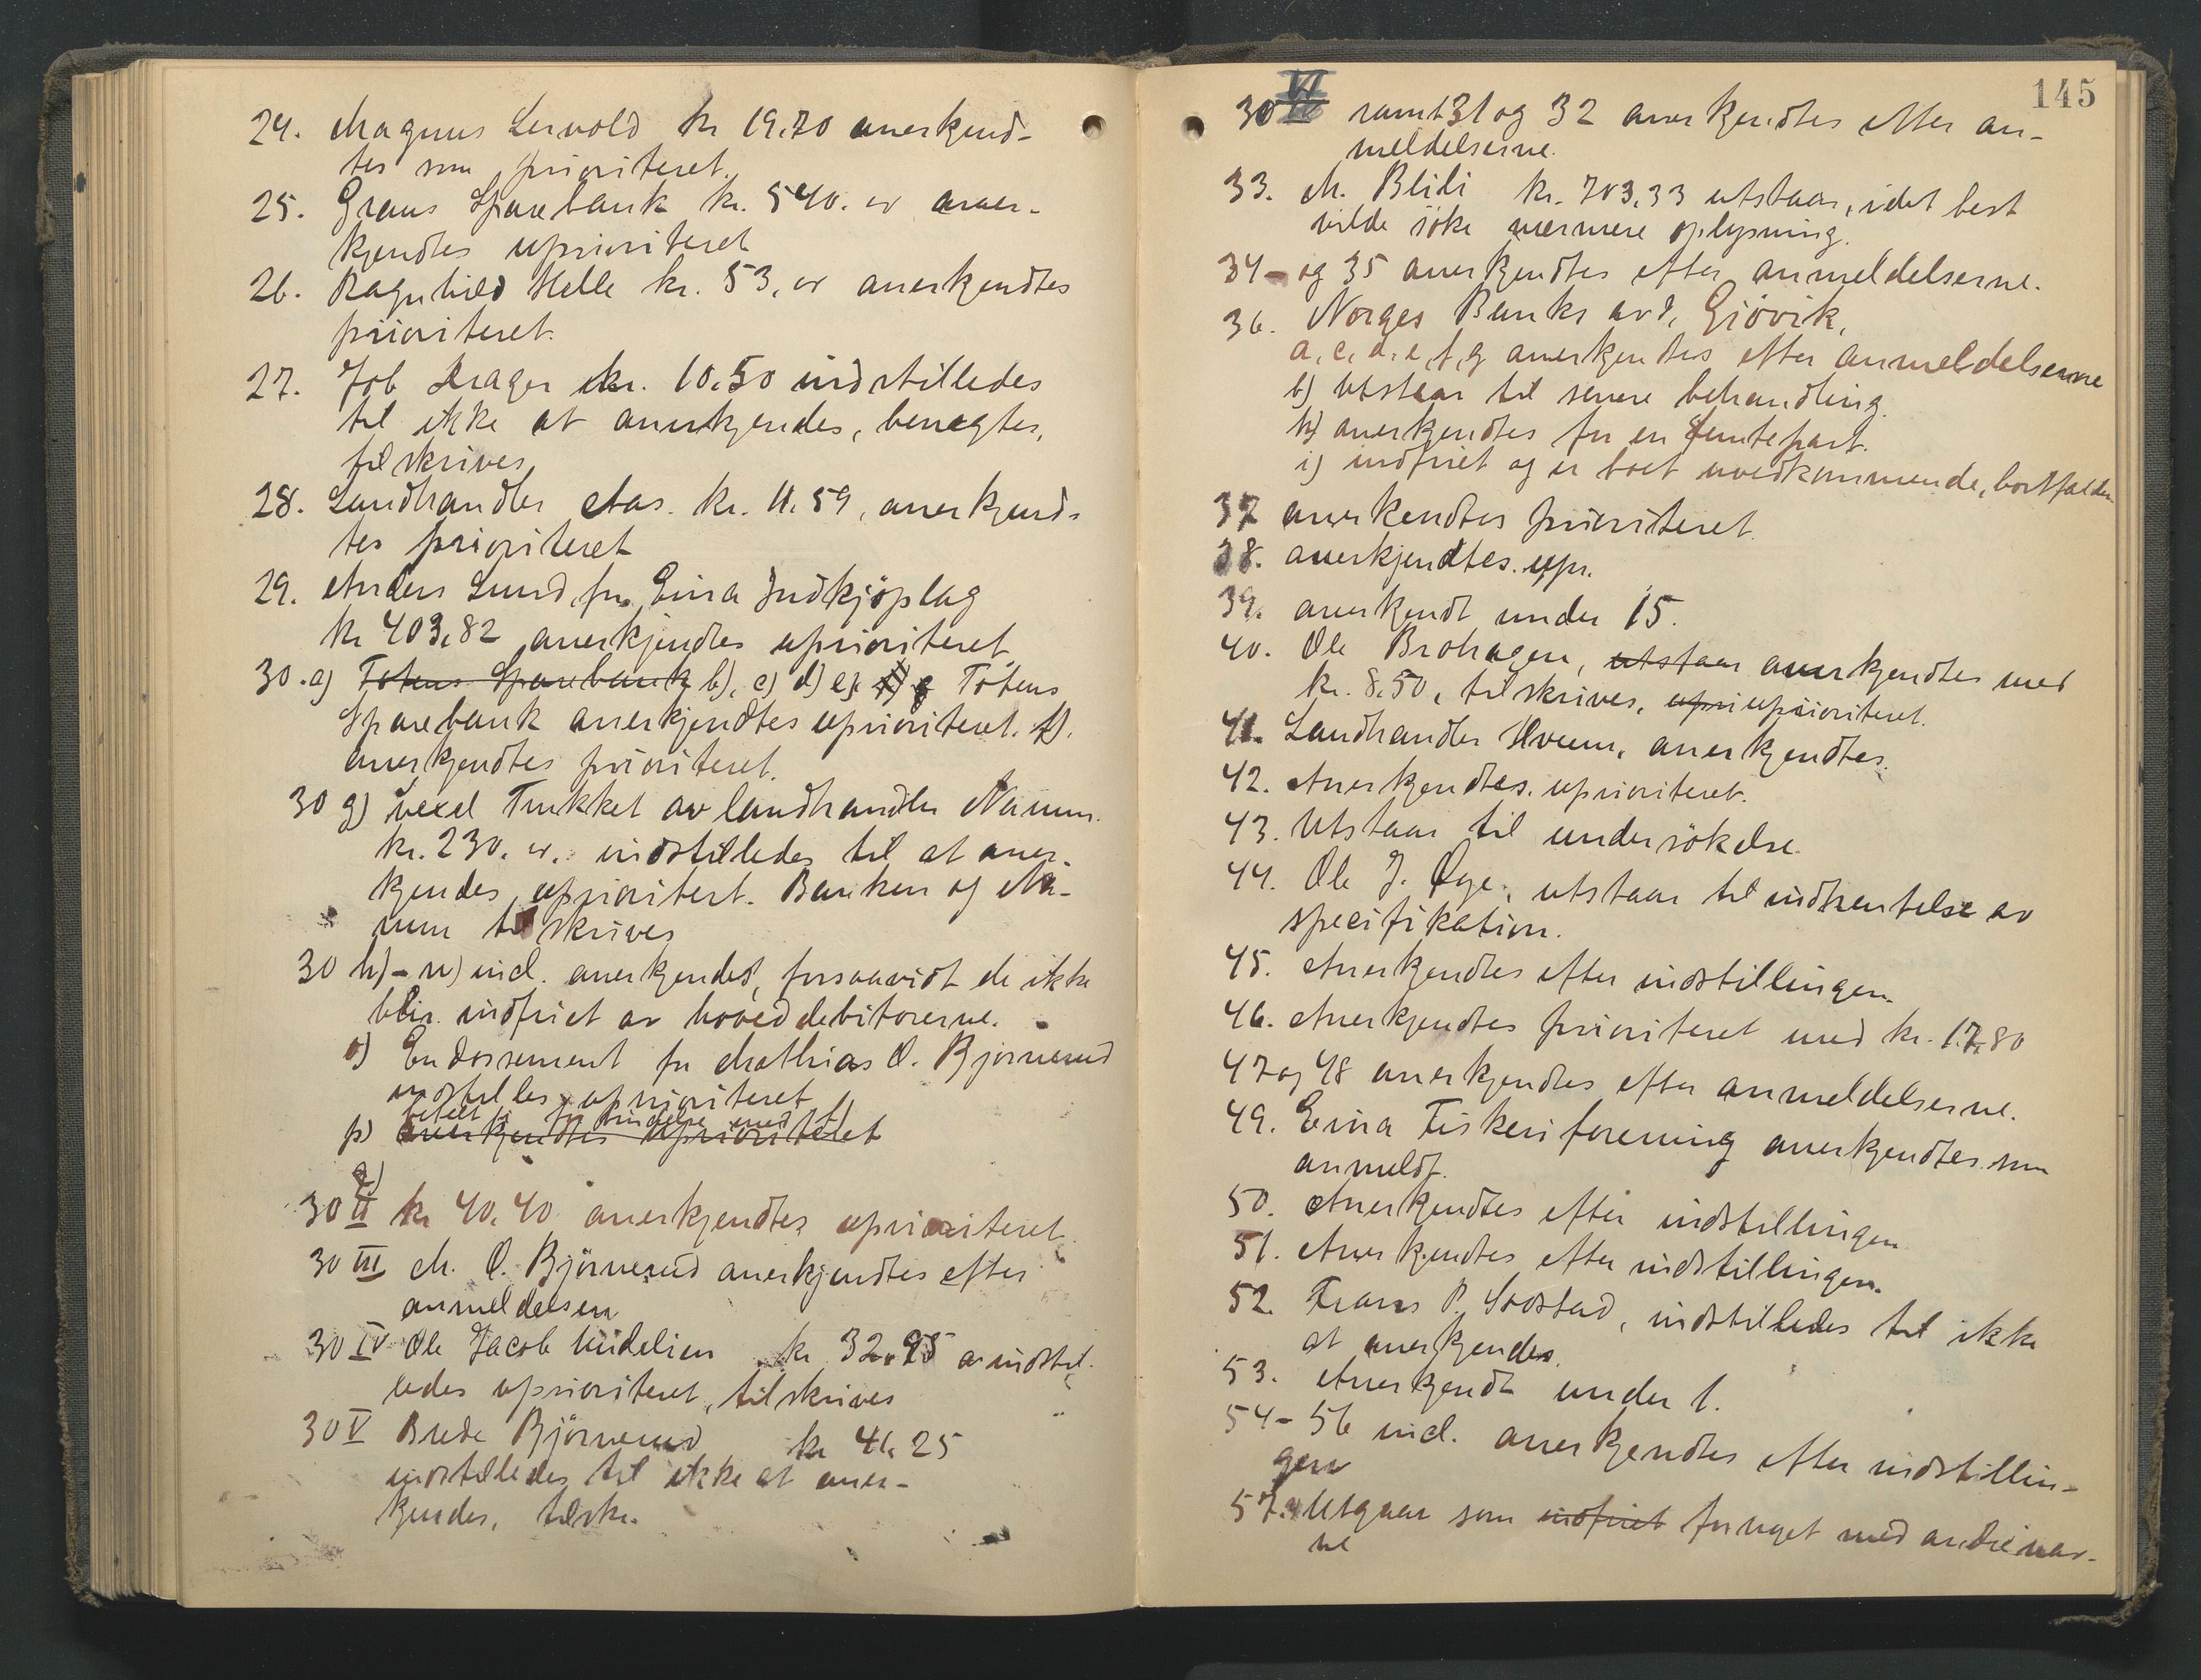 24. Magnus Lervold kr 19,70 anerkjend-
tes som prioriteret.
25. Grans Sparebank kr. 540. 00 aner-
kjendtes uprioriteret
26. Ragnhild Helle kr. 53,00 anerkjendtes
prioriteret.
27. Job Krager kr. 10,50 indstilledes
til ikke at anerkjendes, benegtes,
tilskrives
28. Landhandler Aas. kr. 11.59, anerkjend-
tes prioriteret
29. Anders Lund, fr. Eina Indkjöplag
kr 403,82 anerkjendtes uprioriteret
30. a) Totens Sparebank b), c) d) e), f) g Totens
Sparebank anerkjendtes uprioriteret. f).
anerkjendtes prioriteret.
30 g) vexel Trukket av landhandler Narum
kr. 230. 00. indstilledes til at aner-
kjendes uprioritert. Banken og Na-
rum tilskrives
30 h) - n) incl. anerkjendes, forsaavidt de ikke
blir indfriet av hoveddebitorerne.
o) Endossement fr Mathias O. Bjørnerud
indstilles uprioriteret
betalt jr forbindelse med f)
p) anerkjendtes uprioriteret
a)
30 II kr 40,40 anerkjendtes uprioriteret.
30 III M. O. Björnerud anerkjendtes efter
anmeldelsen
30 IV Ole Jacob Lindelien kr 32.95 a indstil-
ledes uprioriteret, tilskrives
30 V Brede Björnerud kr 41,25
indstilledes til ikke at aner-
kjendes, tilskr.
145
30 VI samt 31 og 32 anerkjendtes efter an-
meldelserne.
33. M. Blili kr. 703,33 utstaar, idet best
vilde söke nærmere oplysning.
34 - og 35 anerkjendtes efter anmeldelserne.
36. Norges Banks avd, Gjövik,
a, c, d, e, f, g anerkjendtes efter anmeldelserne
b) utstaar til senere behandling.
h) anerkjendtes for en femtepart.
i) indfriet og er boet uvedkommende, bortfalder
37 anerkendtes prioriteret.
38. anerkjendtes. upr.
39. anerkjendt under 15.
40. Ole Brohagen, utstaar anerkjendtes med
kr. 8,50, tilskrives, upri uprioriteret.
41. Landhandler Hveem, anerkjendtes.
42. Anerkjendtes. uprioriteret.
43. Utstaar til undersökelse.
44. Ole J. Øye, utstaar til indhentelse av
specifikation.
45. Anerkjendtes efter indstillingen.
46. Anerkjendtes prioriteret med kr. 17,80
47 og 48 anerkjendtes efter anmeldelserne.
49. Eina Fiskeriforening anerkjendtes som
anmeldt.
50. Anerkjendtes efter indstillingen
51. Anerkjendtes efter indstillingen.
52. Frans P. Sostad, indstilledes til ikke
at anerkjendes.
53. Anerkjendt under 1.
54 - 56 incl. anerkjendtes efter indstillin-
gen
57. Utgaar som indfriet fornyet med andre nav-
ne